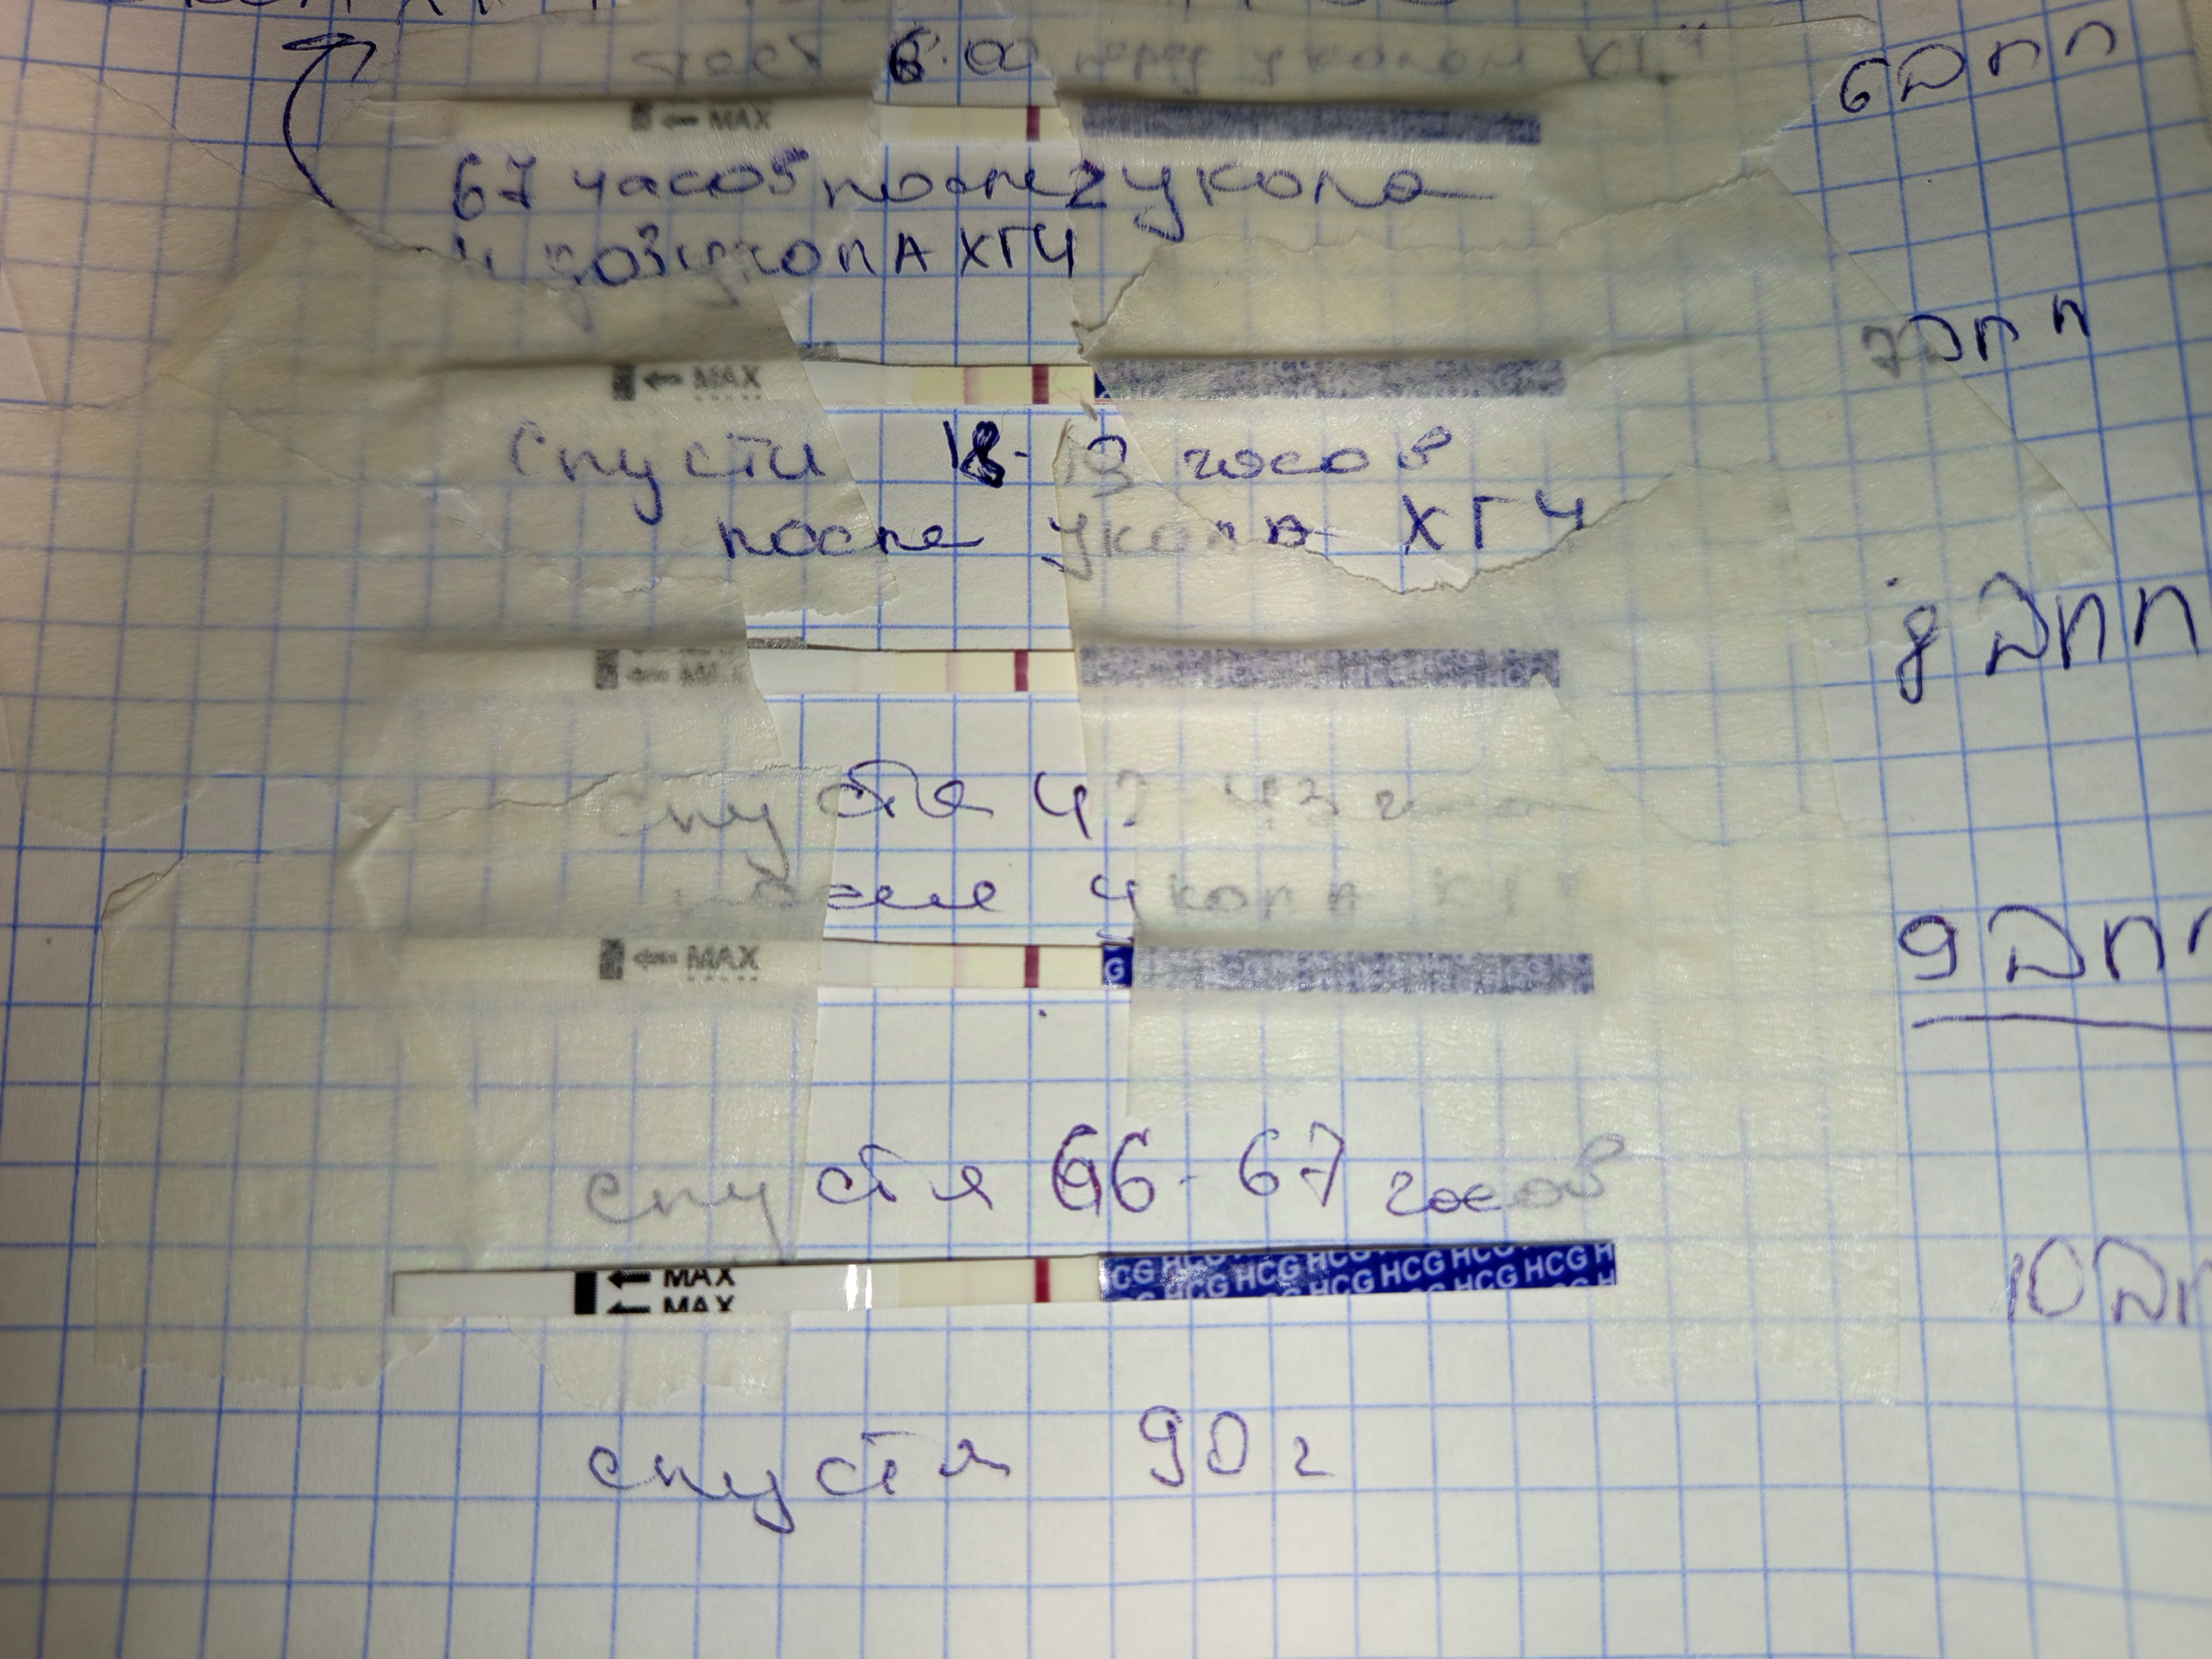 тест 6:00 перед уколом ХГЧ
6 Дпп
← MAX
67 часов после 2 укола
укола ХГЧ
7 Дпп
← MAX
Спустя 18-19 часов
после укола ХГЧ
8 Дпп
← MAX
спустя 42-43
после укола ХГЧ
9 Дпп
← MAX
G
спустя 66-67 часов
10 Дп
← MAX
← MAX
CG HCG HCG HCG HCG
HCG HCG HCG HCG HCG
спустя 90 г